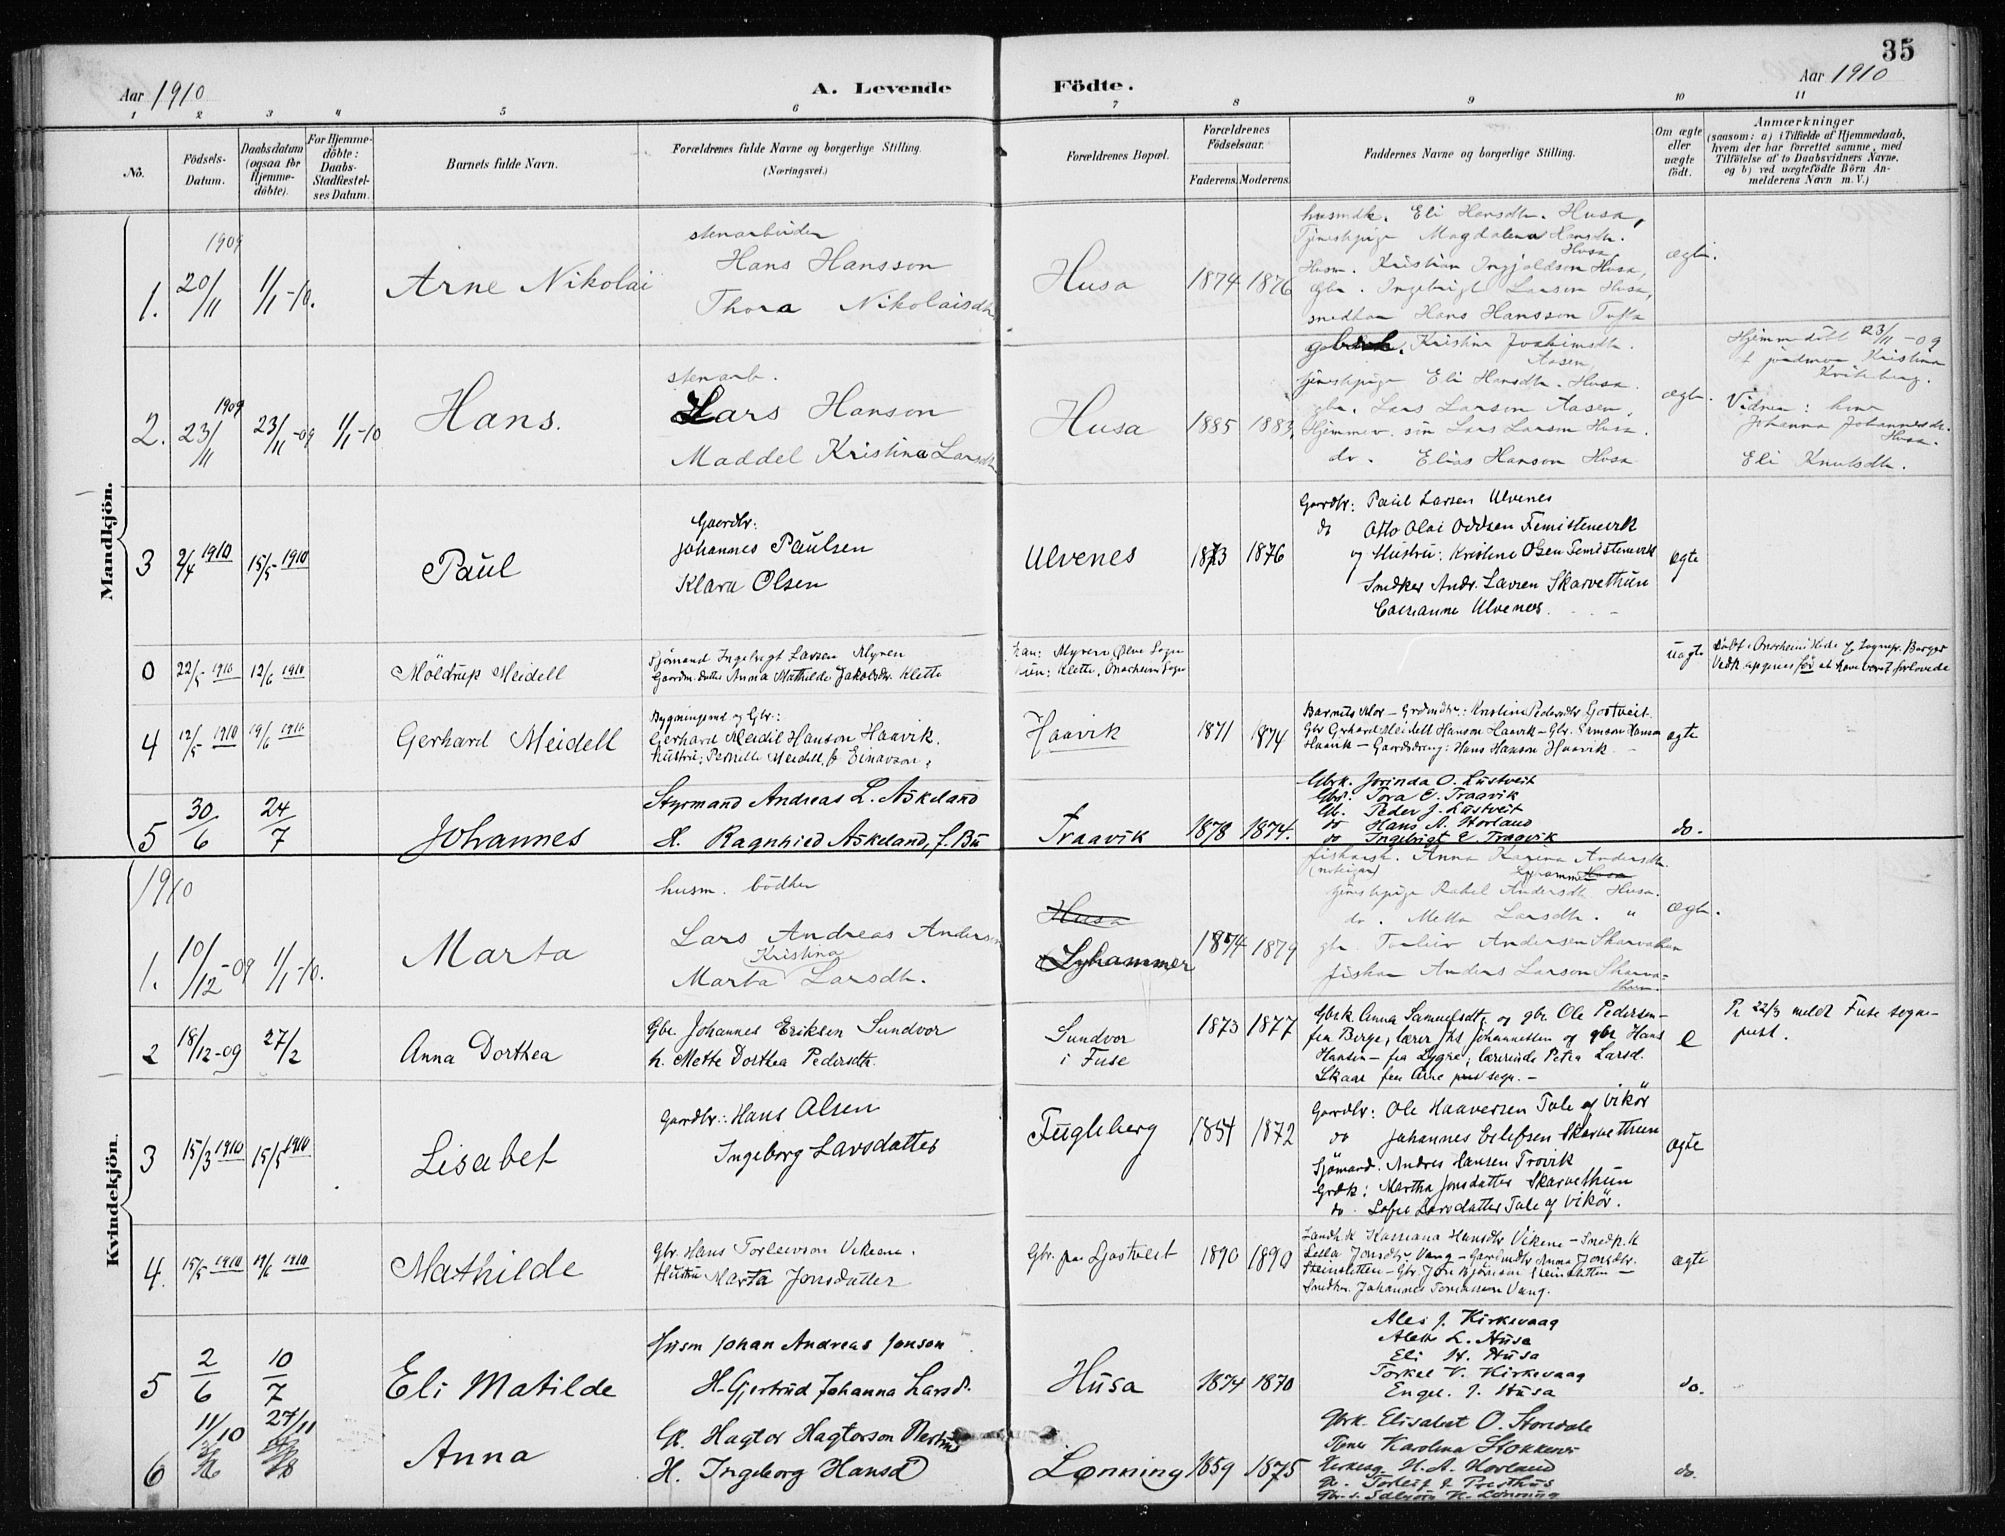 35
Aar 1910
A. Levende
Födte.
Aar 1910
1 2 3 4 5 6 7 8 9 10 11
No.
Födsels-Datum.
Daabsdatum (ogsaa for Hjemme-döbte).
For Hjemme-döbte: Daabs-Stadfæstel-ses Datum.
Barnets fulde Navn.
Forældrenes fulde Navne og borgerlige Stilling. (Næringsvei.)
Forældrenes Bopæl.
Forældrenes Födselsaar.
Faderens. Moderens.
Faddernes Navne og borgerlige Stilling.
Om ægte eller uægte født.
Anmærkninger
(saasom: a) i Tilfælde af Hjemmedaab, hvem der har forrettet samme, med Tilföielse af to Daabsvidners Navne, og b) ved uægtefödte Börn An-melderens Navn m. V.)
Mandkjön.
1909
1. 20/11 1/1-10. Arne Nikolai
stenarbeider
Hans Hansson
Thora Nikolaisdtr
Husa 1874 1876
husmdk. Eli Hansdtr. Husa,
Tjenestepige Magdalena Hansdtr. Husa,
Husm. Kristian Ingjaldson Husa,
gbr. Ingebrigt Larson Husa,
Hans Hansson Tofta
ægte.
1909
2. 23/11 23/11-09 1/1-10 Hans.
stenarb.
Lars Hanson
Maddel Kristina Larsdtr
Husa 1885 1883,
Kristina Joakimsdtr. Aasen
tjenestepige Eli Hansdtr. Husa.
gbr. Lars Larson Aasen,
Hjemmev. sön Lars Larson Husa.
do. Elias Hanson Husa
ægte.
Hjemmedöbt 23/11-09
af jordmor Kristina
Vidner: kone
Johanna Johannesdtr. Husa.
Eli Knutsdtr.
3 2/4 1910 15/5 1910 Paul
Gaardbr:
Johannes Paulsen
Klara Olsen
Ulvenes 1873 1876
Gaardbr: Paul Larsen Ulvenes
do Otto Olai Oddsen Femistenevik
og Hustru: Kristine Olsen Femistenevik
Snedker Andr. Larsen Skarvethun
Ulvenes.
ægte
0 22/5 1910 12/6 1910 Möldrup Meidell
Sjömand Ingebrigt Larsen Myren
Gaardm. datter Anna Mathilde Jakobsdtr. Klette
Han: Myren Ølve Sogn
Klette, Onarheim Sogn
uægte
4 12/5 1910 19/6 1910 Gerhard Meidell
Bygningsmd. og Gbr:
Gerhard Meidel Hanson Haavik.
Hustru: Pernille Meidell f. Einarson.
Haavik 1871 1874
Barnets Mor – Grdmdtr: Kristina Pedersdtr Gjostveit.
Gbr Gerhard Meidell Hanson Haavik – Gbr. Hanson
Haavik – Gaardsdreng: Hans Hanson Haavik.
ægte
5 30/6 24/7 Johannes
Styrmand Andreas L. Askeland
H. Ragnhild Askeland, f. Bu
Traavik 1878 1874.
Gbrk. Jorinda O. Lustveit
Tora E. Traavik
Gb. Peder J. Lustveit
do Hans A. Horland
do Ingebrigt E. Traavik
do.
Kvindekjön.
1910
1. 10/12-09 1/1-10. Marta
husm. bödker
Lars Andreas Anderson
Kristina
Marta Larsdtr.
Husa
Lyhammer
1874 1879
Anna Karina Andersdtr.
Lyhammer Husa
tjenestepige Rakel Andersdtr Husa.
do. Metta Larsdtr. "
gbr. Torleiv Andersen Skarvatun
fisker Anders Larson Skarva-
thun.
ægte.
2 18/12-09 27/2 Anna Dorthea
Gbr. Johannes Eriksen Sundvor
h. Mette Dorthea Pedersdtr.
Sundvor
i Fuse
1873 1877
Gbrk Anna Samuelsdtr, og gbr. Ole Pedersen –
fra Berge, lærer Johannessen og gbr Hans
Hansen – fra Lygre; lærerinde Petra Larsd.
Skaar fra sogn. –
e
Pr 22/3 meldt Fuse sogne-
prest.
3 15/3 1910 15/5 1910 Lisabet
Gaardbr: Hans Olsen
Ingeborg Larsdatter
Fugleberg 1854 1872
Gaardbr: Ole Haaversen Tale af Vikör
do Johannes Eilefsen Skarvethun
Sjömand. Andres Hansen Trovik
Grdk: Martha Jonsdatter Skarvethun
do. Sofie Larsdatter Tale af Vikör.
ægte
4. 15/5 1910 19/6 1910 Mathilde
Gbr. Hans Torleivson Vikene.
Hustru Marta Jonsdatter
Gbr. paa Gjostveit 1890 1890
Hansdtr Vikene –
Jonsdtr Vang – Anna Jonsdtr.
Steinsletten – Gbr Steinsletten –
Snedker. Johannes Vang.
ægte
5 2/6 10/7 Eli Matilde
Husm Johan Andreas Jonson
H. Gjertrud Johanna Larsd.
Husa 1874 1870
J. Kirkevaag
L. Husa
Eli H. Husa
Torkel V. Kirkevaag
Engel. J. Husa
do.
6 11/10 27/11 Anna
Gk. Hagtor Hagtorson
H. Ingeborg Hansd
Lønning 1859 1875
Gbrk. Elisabet O. Stordale
Karolina
H. A. Horland
do.